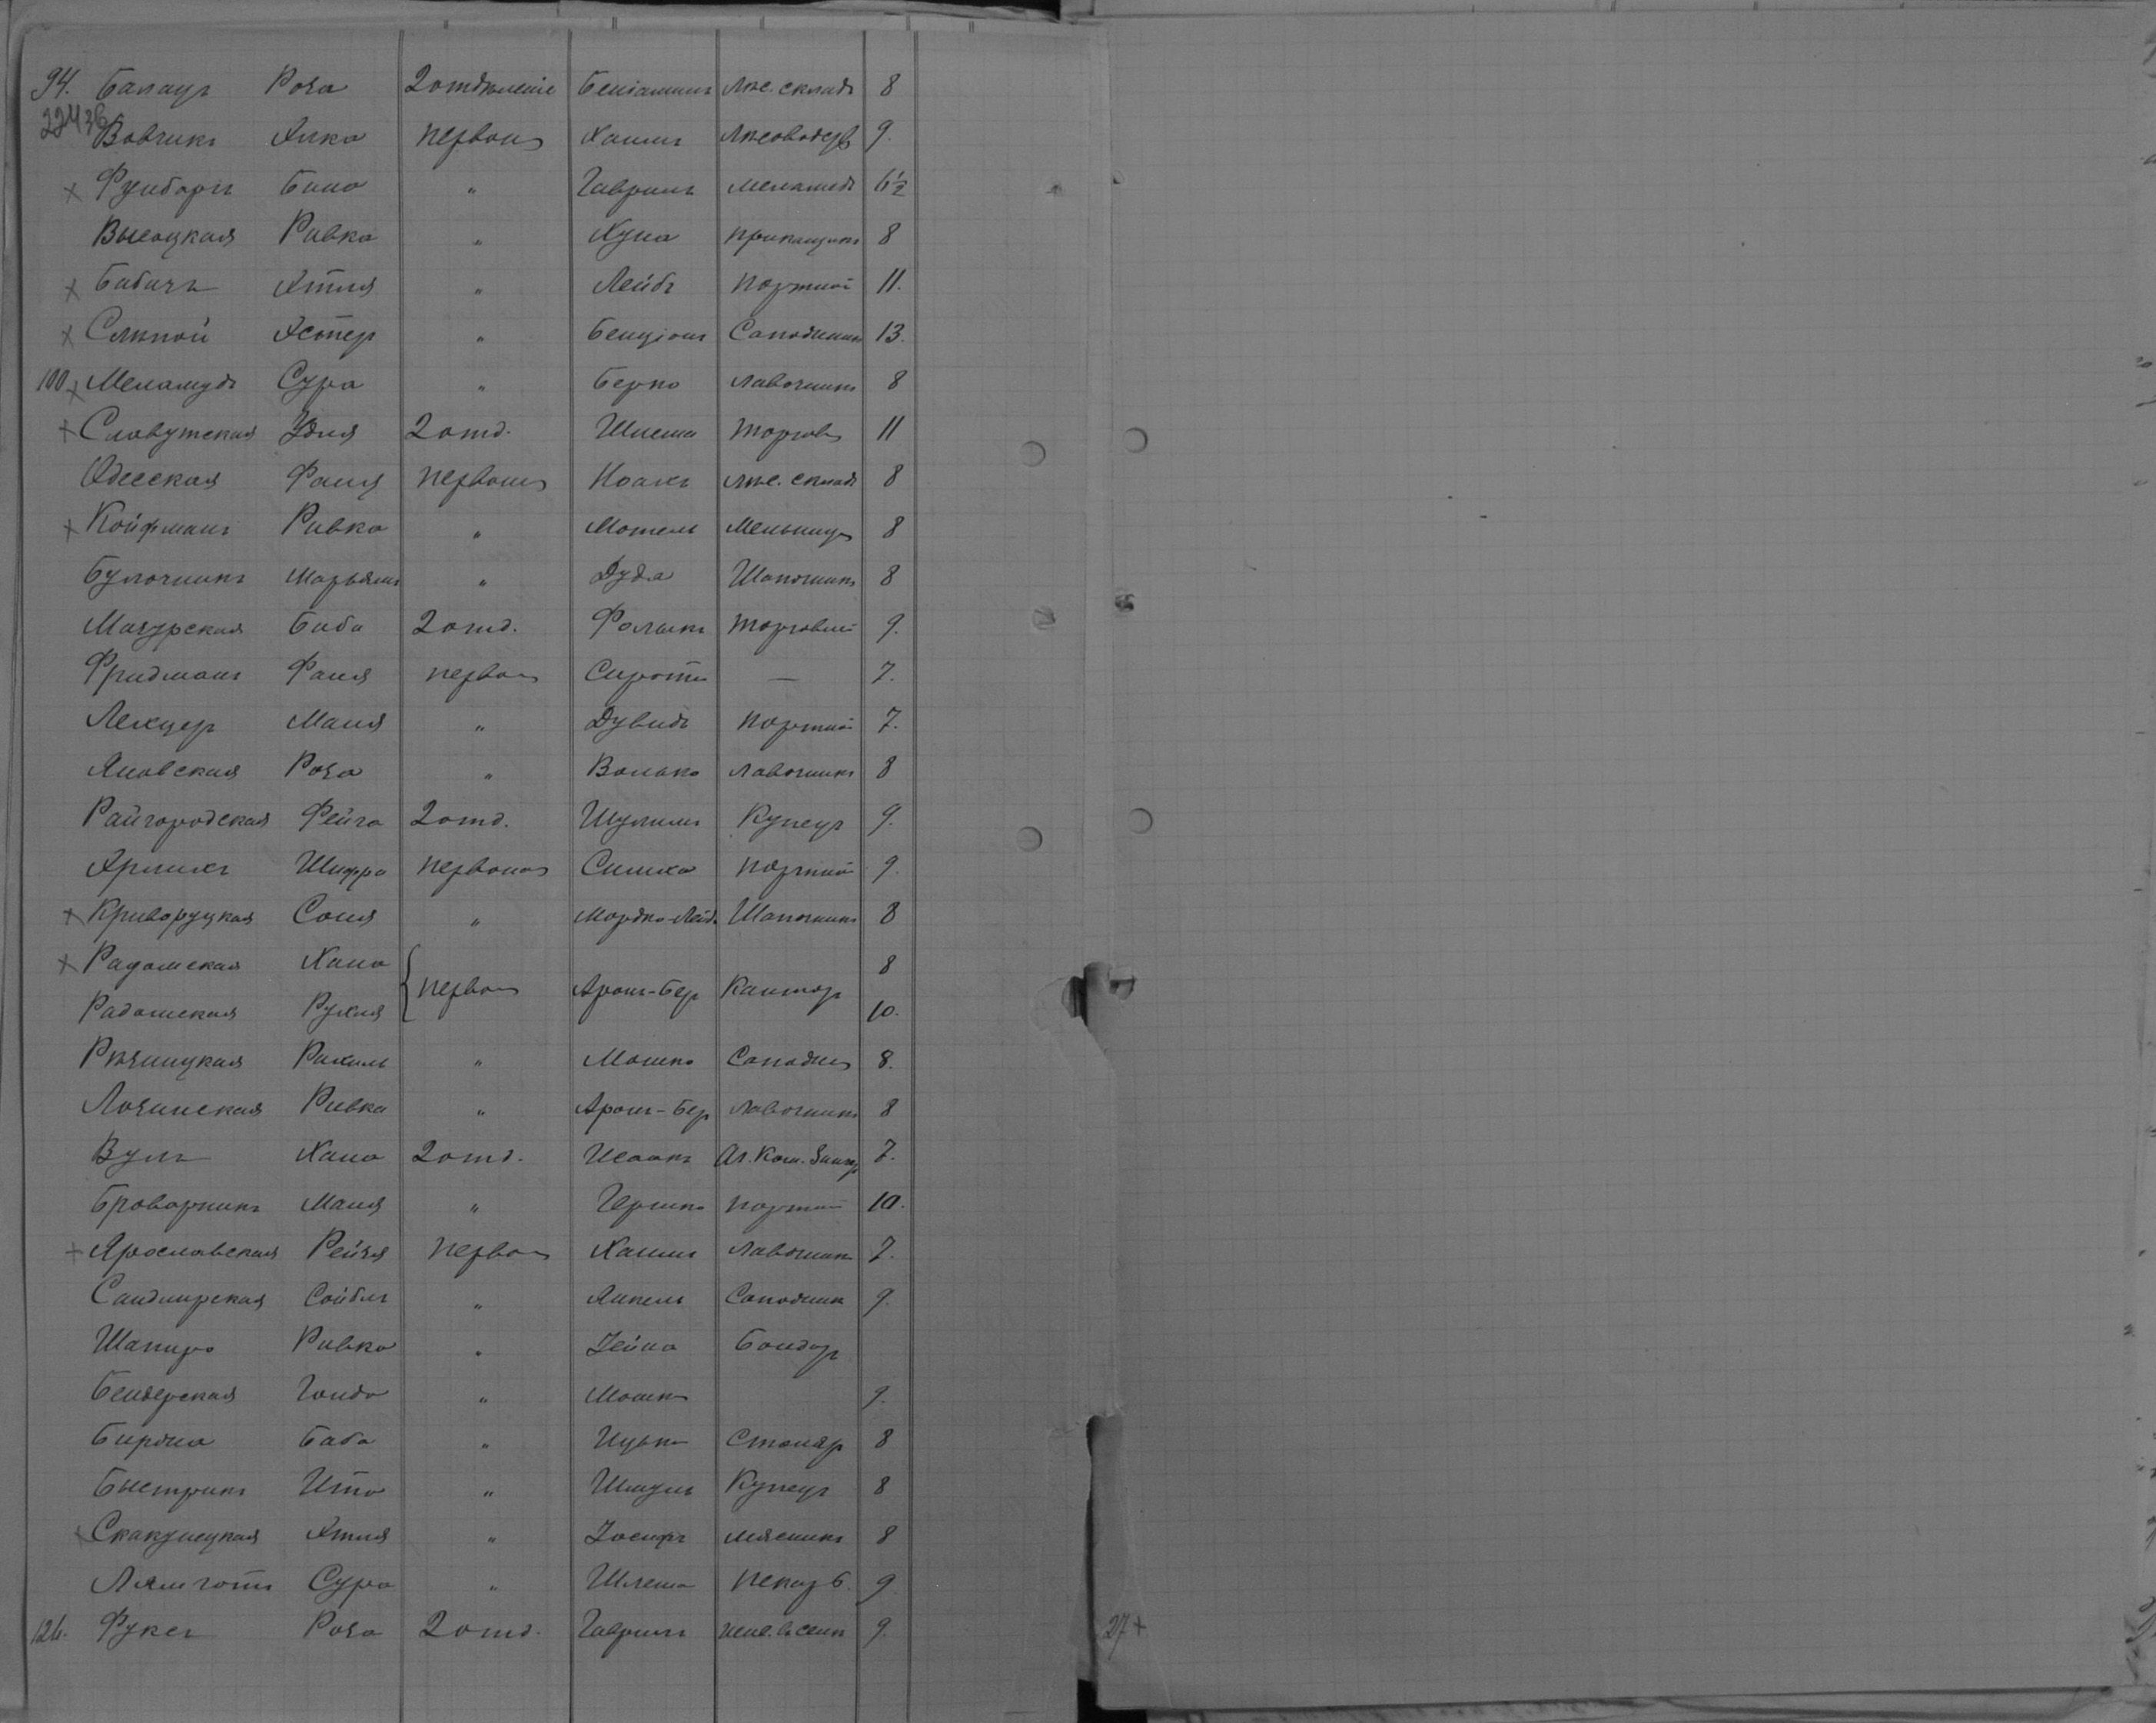 94. Балацъ Роза 2 отдѣленіе Беніаминъ лѣс. складъ 8
22436
Вовчикъ Хика первонач Хаимъ лѣсоводств 9.
× Рунборгъ Бина " Гаврилъ меламедъ 6½
Высоцкая Ривка " Хуна прикащикъ 8
× Бабичъ Хтня " Лейбъ портной 11.
× Слѣпой Хстер " Бенціонъ Сапожникъ 13.
100 × Меламудъ Сура " Берко лавочникъ 8
× Славутская Удля 2 отд. Шлема торгов 11
Одесская Фаня первонач Ноахъ лѣс. складъ 8
× Койфманъ Ривка " Мотель Мельниц 8
Булочникъ Марьямъ " Дуда Шапочникъ 8
Мазурская Баба 2 отд. Фаликъ торговый 9.
Фридманъ Фаня первон Сирота — 7.
Лехцер Маня " Дувидъ портной 7.
Яновская Роза " Волько лавочникъ 8
Райгородская Фейга 2 отд. Шулимъ Купецъ 9.
Шифра первонач Симха портной 9.
× Криворуцкая Соня " Мордко-Лейб Шапочникъ 8
× Радомская Хана 8
первон Аронъ-Бер Кантор
Радомская Рухля 10.
Рѣчицкая Рахиль " Мошко Сапожн 8.
Лозинская Ривка " Аронъ-Бер лавочникъ 8
Вулъ Хана 2 отд. Исаакъ Аг. Ком. Зингер 7.
Броварникъ Маня " Гершко портной 10.
+ Ярославская Рейзя первон Хаимъ лавочник 7.
Сандмирская Сойбль " Янкель Сапожник 9.
Шапиро Ривка " Зейна Бондар
Бендерская Голда " Мошко 9.
Бирзна Баба " Ицько Столяр 8
Быстрикъ Ита " Шмуль Купецъ 8
Скакунецкая Хтня " Іосифъ мясникъ 8
Сура " Шлема пекар б. 9
126. Фуксъ Роза 2 отд. Гаврилъ 9.
27+